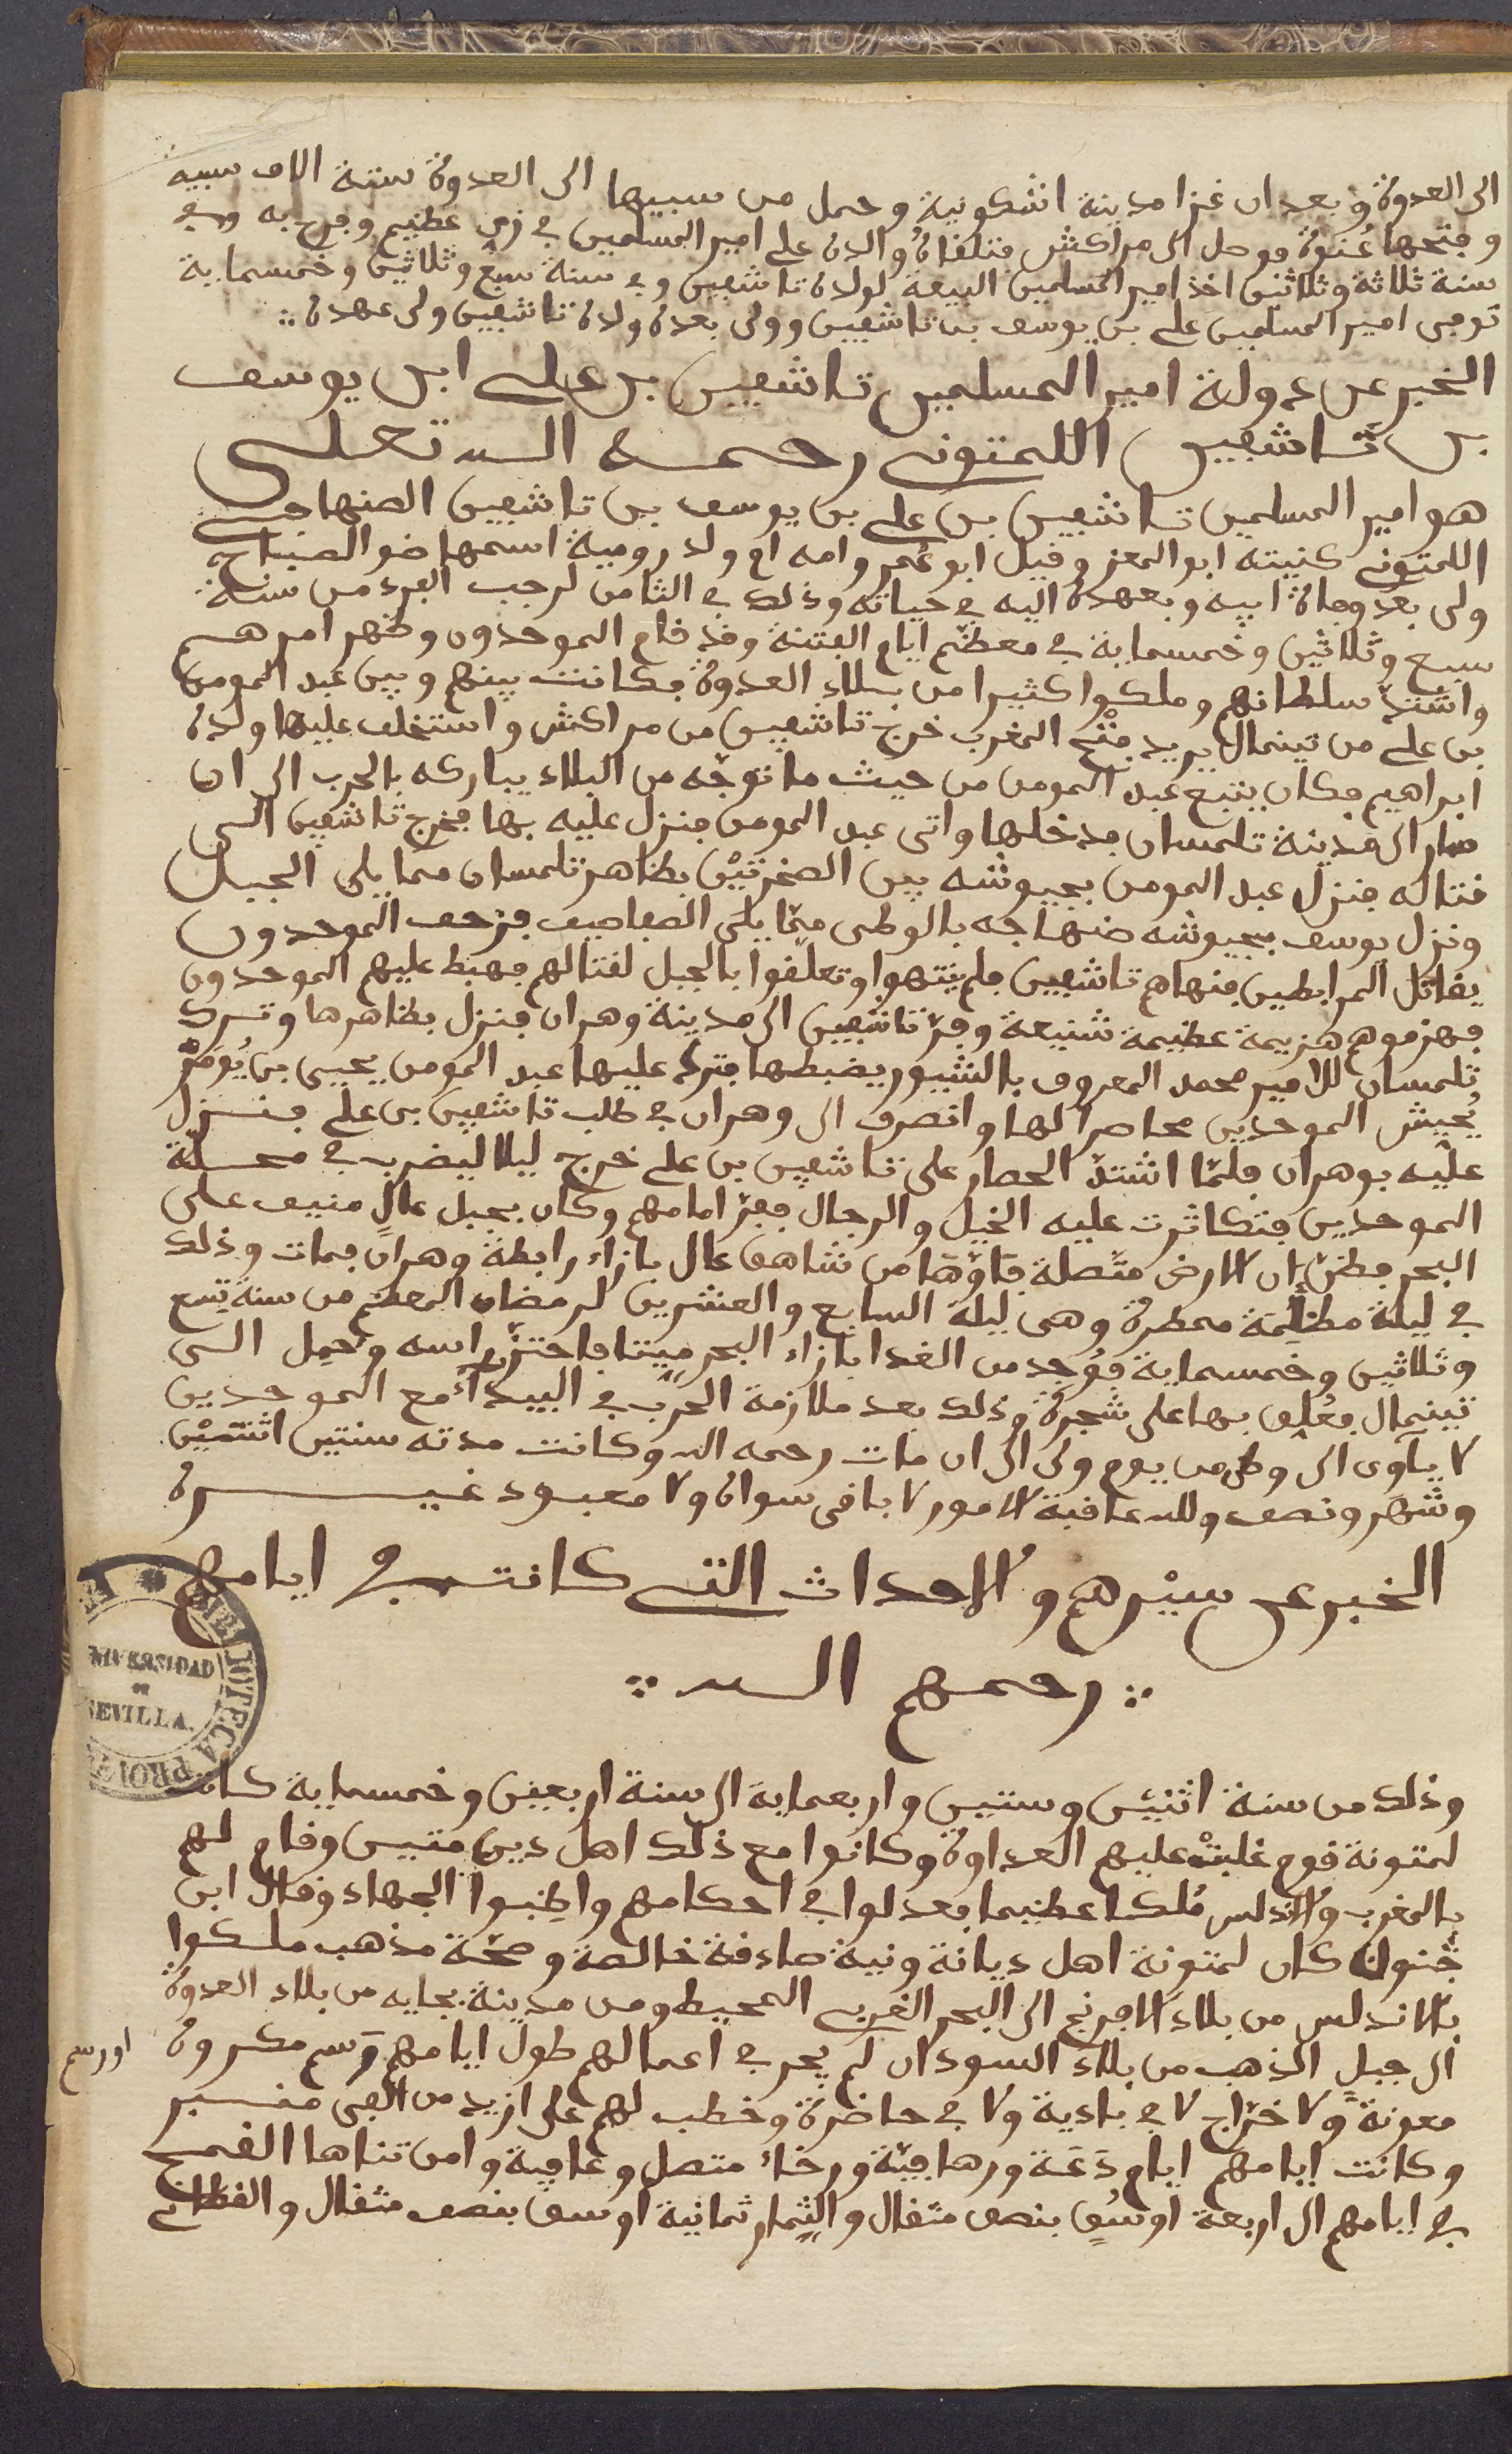 الى العدوة وبعد ان غزا مدينة اشكونية وحمل من سبيها الى العدوة ستة الاف سبيه
وفتحها عُنوة فوصل الى مراكش فتلقاه والده علي امير المسلمين في زي عظيم وفرح به وفي
سنة ثلاثة وثلاثين اخذ امير المسلمين البيعة لولده تاشفين وفي سنة سبع وثلاثين وخمسماية
توفي امير المسلمين علي بن يوسف بن تاشفين وولى بعده ولده تاشفين ولي عهده
الخبر عن دولة امير المسلمين تاشفين بن علي ابن يوسف
بن تاشفين اللمتوني رحمه الله تعلى
هو امير المسلمين تاشفين بن علي بن يوسف بن تاشفين الصنهاجي
اللمتوني كنيته ابو المعز وقيل ابو عُمر وامه ام ولد رومية اسمها ضو الصباح
ولى بعد وفاة ابيه وبعهده اليه في حياته وذلك في الثامن لرجب الفرد من سنة
سبع وثلاثين وخمسماية في معظم ايام الفتنة وقد قام الموحدون وظهر امرهم
واشتدّ سلطانهم وملكوا كثيرا من بلاد العدوة فكانت بينهم وبين عبد المومن
بن علي من تينمال يريد فتح المغرب خرج تاشفين من مراكش واستخلف عليها ولده
ابراهيم فكان يتبع عبد المومن من حيث ما توجّه من البلاد يباركه بالحرب الى ان
صار الى مدينة تلمسان فدخلها واتى عبد المومن فنزل عليه بها فخرج تاشفين الى
قتاله فنزل عبد المومن بجيوشه بين الصخرتيْن بظاهر تلمسان مما يلي الجبل
ونزل يوسف بجيوشه صنهاجه بالوطى ممّا يلى الصفاصيف فزحف الموحدون
يقاتل المرابطين فنهاهم تاشفين فلم ينتهوا وتعلّقوا بالجبل لقتالهم فهبط عليهم الموحدون
فهزموهم هزيمة عظيمة شنيعة وفرّ تاشفين الى مدينة وهران فنزل بظاهرها وترك
تلمسان للامير محمد المعروف بالشيور يضبطها فترك عليها عبد المومن يحيى بن يُومر
بُجيش الموحدين محاصرا لها وانصرف الى وهران في طلب تاشفين بن علي فنزل
عليْه بوهران فلمّا اشتدّ الحصار على تاشفين بن علي خرج ليلا ليضرب في محلة
الموحدين فتكاثرت عليه الخيل والرجال ففرّ امامهم وكان بجبل عالٍ منيف على
البحر فظنّ ان الارض متّصلة فاَوْها من شاهق عال بازاء رابطة وهران فمات وذلك
في ليلة مظلمة ممطرة وهى ليلة السابع والعشرين لرمضان المعظم من سنة تِسع
وثلاثين وخمسماية فوُجد من الغدا بازاء البحر ميّتا فاحتزّ راسه وحمِل الى
تينمال فعُلِق بها على شجرة وذلك بعد ملازمة الحرب في البيداء مع الموحدين
لا ياَوى الى وطى من يوم ولى الى ان مات رحمه الله وكانت مدته سنتين اثنتيْن
وشهر ونصف ولله عاقبة الامور لا باقى سواه ولا معبود غيره
الخبر عن سيْرهم والاحداث التي كانت في ايامهم
رحمهم الله
وذلك من سنة اثنيْن وستين واربعماية الى سنة اربعين وخمسماية كانت
لمتونة قوم غلبتْ عليهم العداوة وكانوا مع ذلك اهل دين متيس وقام لهم
بالمغرب والاندلس مُلكا عظيما فعدلوا في احكامهم واطِنبوا الجهاد وقال ابن
جُنون كان لمتونة اهل ديانة ونية صادقة خالصة وصحّة مذهب ملكوا
بالاندلس من بلاد الافرنج الى البحر الغربى المحيط ومن مدينة بجايه من بلاد العدوة
الى جبل الذهب من بلاد السودان لم يجر في اعمالهم طول ايامهم رَسم مكروه
او رسم
معونة ولا خرّاج لا في بادية ولا في حاضرة وخطب لهم على ازيد من الفى منبر
وكانت ايامهم ايام دَعَة ورهافيّة ورخاء متصل وعافية وامن تناها القمح
في ايامهم الى اربعة اوسُق بنصف مثقال والثِمار ثمانية اوسق بنصف مثقال والقطانى
BIBLIOTECA PROV
UNIVERSIDAD
DE
SEVILLA.